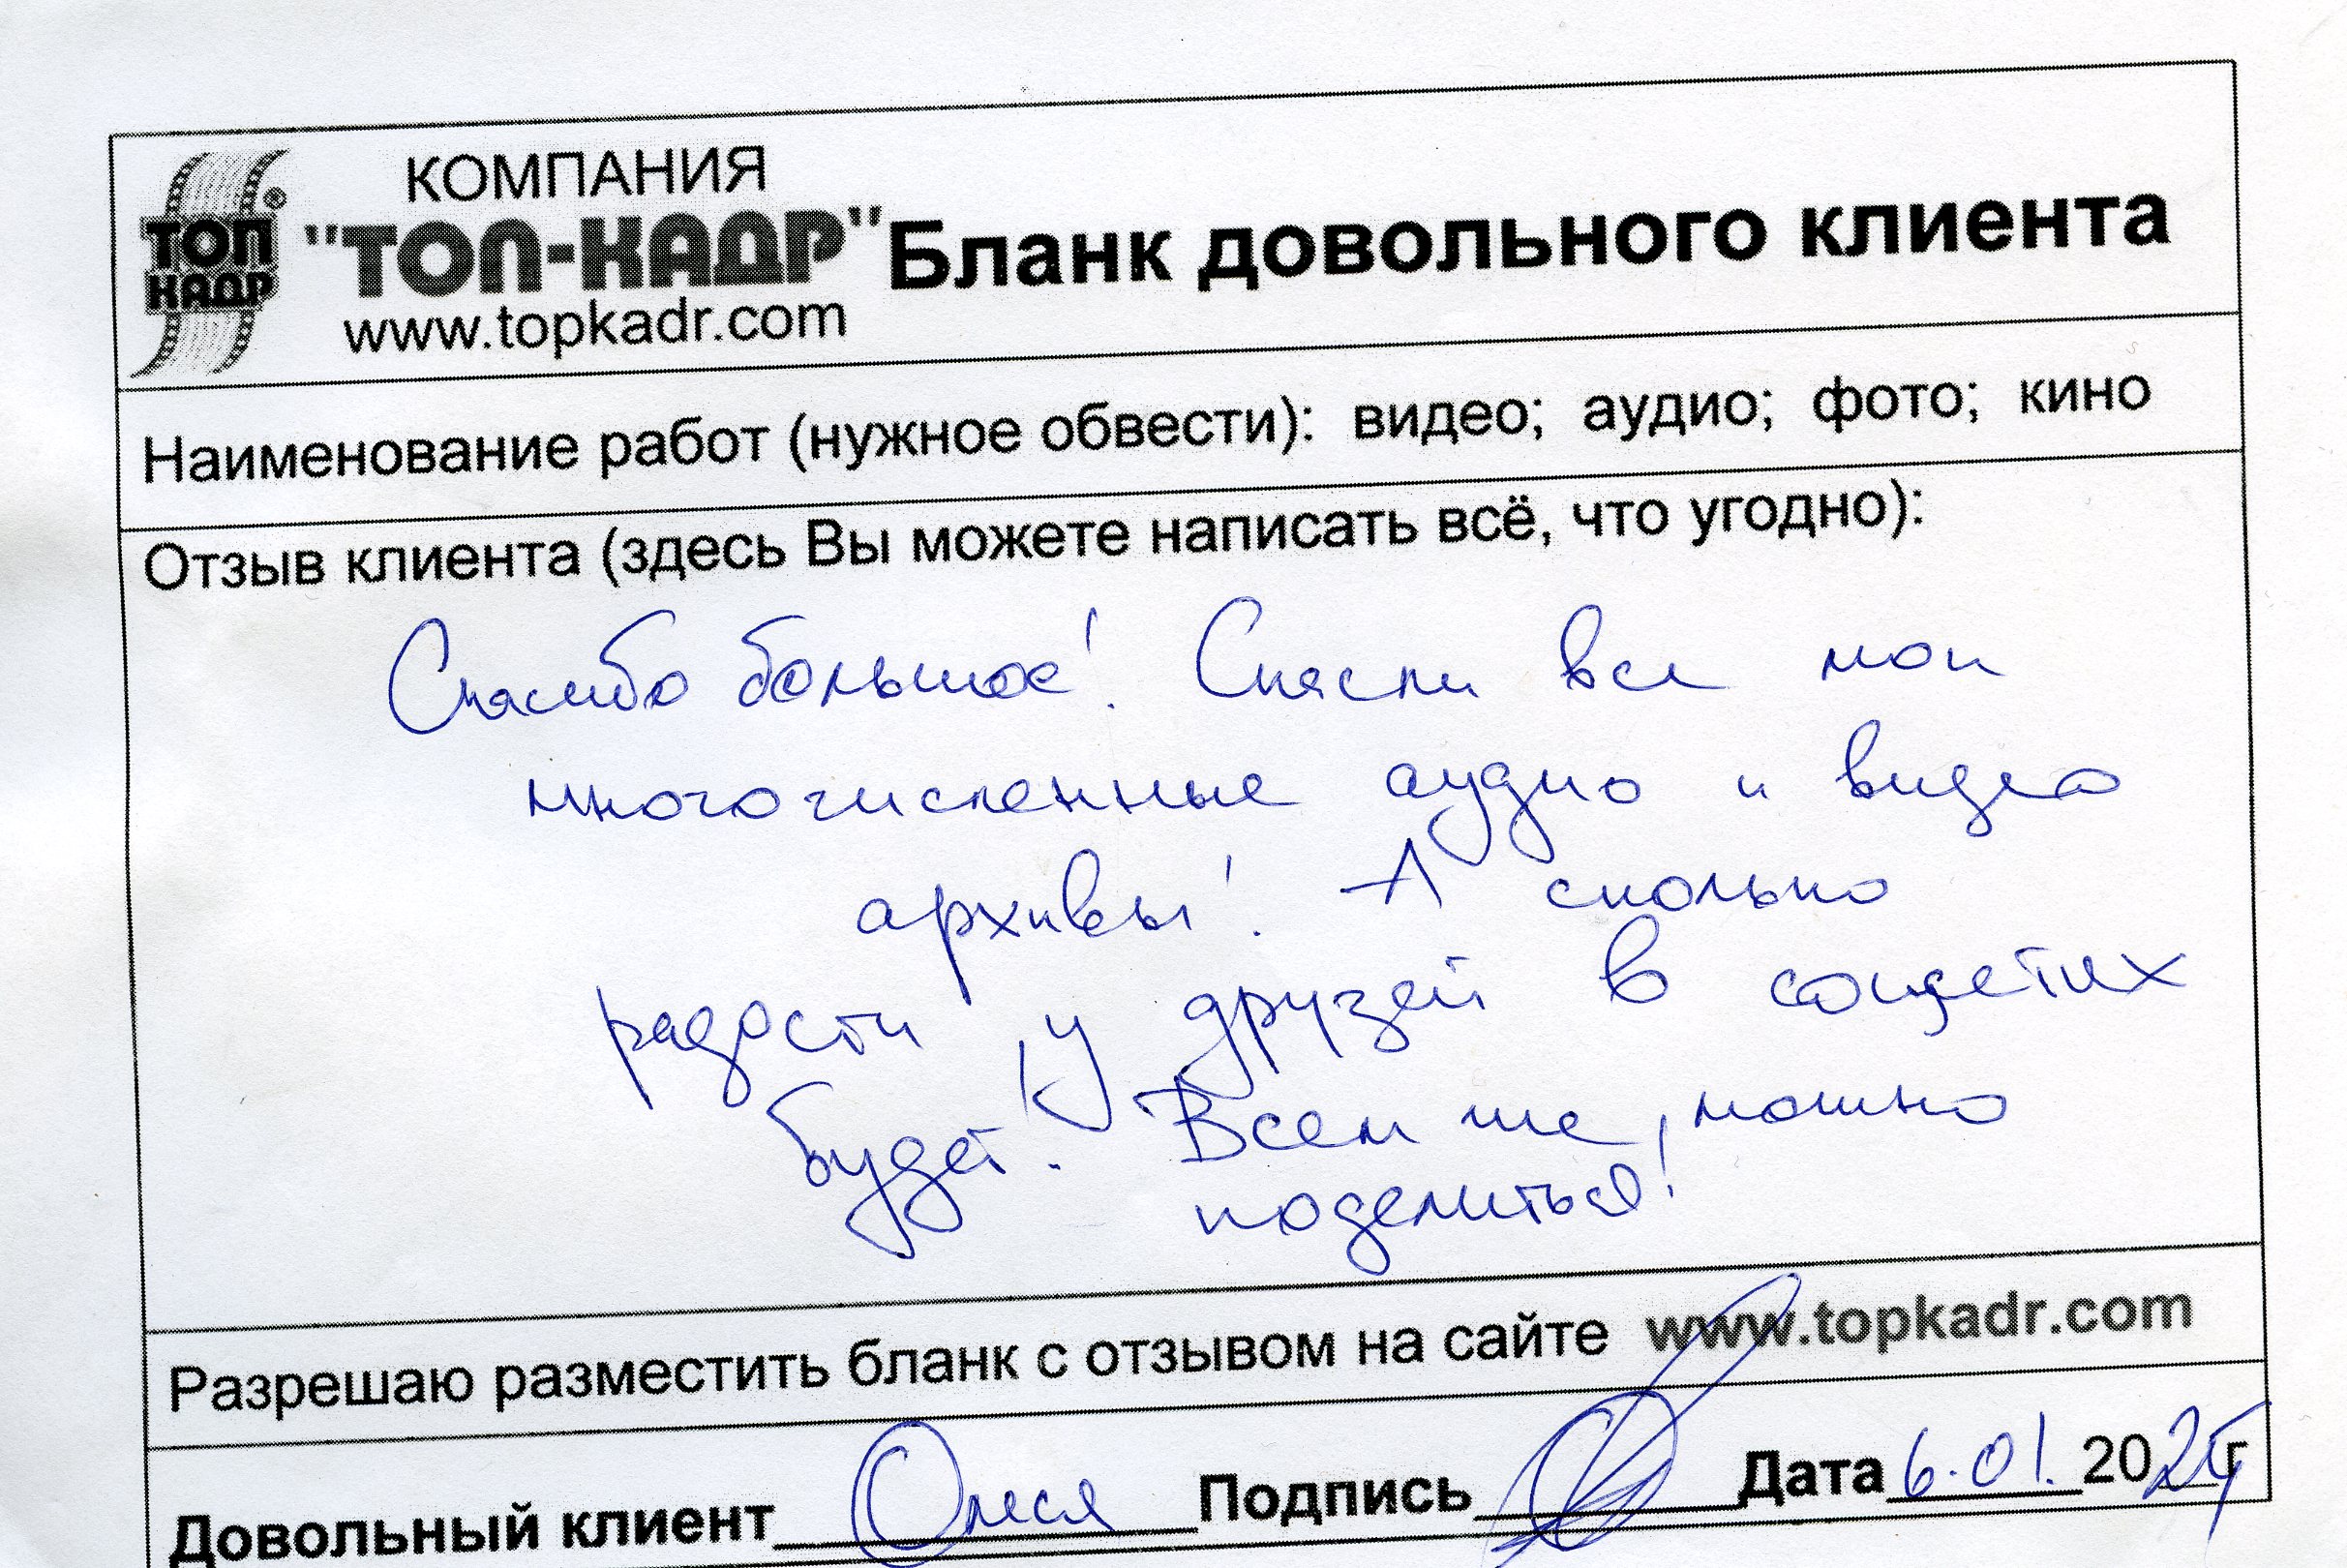 КОМПАНИЯ
ТОП КАДР ®
"ТОП-КАДР" Бланк довольного клиента
www.topkadr.com
Наименование работ (нужное обвести): видео; аудио; фото; кино
Отзыв клиента (здесь Вы можете написать всё, что угодно):
Спасибо большое! Спасли все мои
многочисленные аудио и видео
архивы! А сколько
радости у друзей в соцсетях
будет! Всем же, можно
поделиться!
Разрешаю разместить бланк с отзывом на сайте www.topkadr.com
Довольный клиент Олеся Подпись Дата 6.01.2025г